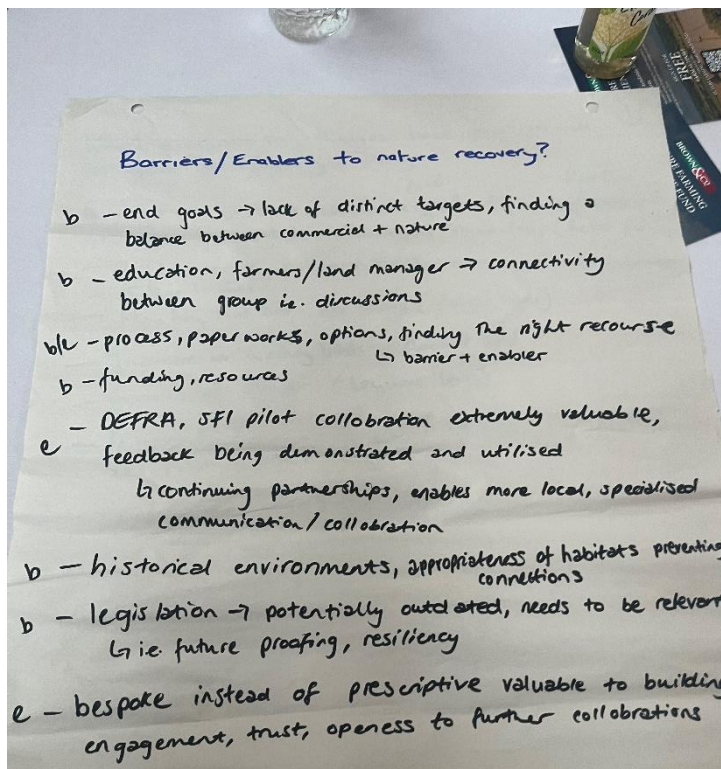 Barriers/Enablers to nature recovery?
b - end goals → lack of distinct targets, finding a
balance between commercial + nature
b - education, farmers/land manager → connectivity
between group ie. discussions
b/e - process, paperworks, options, finding the right recourse
↳ barrier + enabler
b - funding, resources
e - DEFRA, SFI pilot collobration extremely valuable,
feedback being demonstrated and utilised
↳ continuing partnerships, enables more local, specialised
communication / collobration
b - historical environments, appropriateness of habitats preventing
connections
b - legislation → potentially outdated, needs to be relevant
↳ i.e. future proofing, resiliency
e - bespoke instead of prescriptive valuable to building
engagement, trust, openess to further collobrations
FREE
BROWN&CO
RE FARMING
FUND